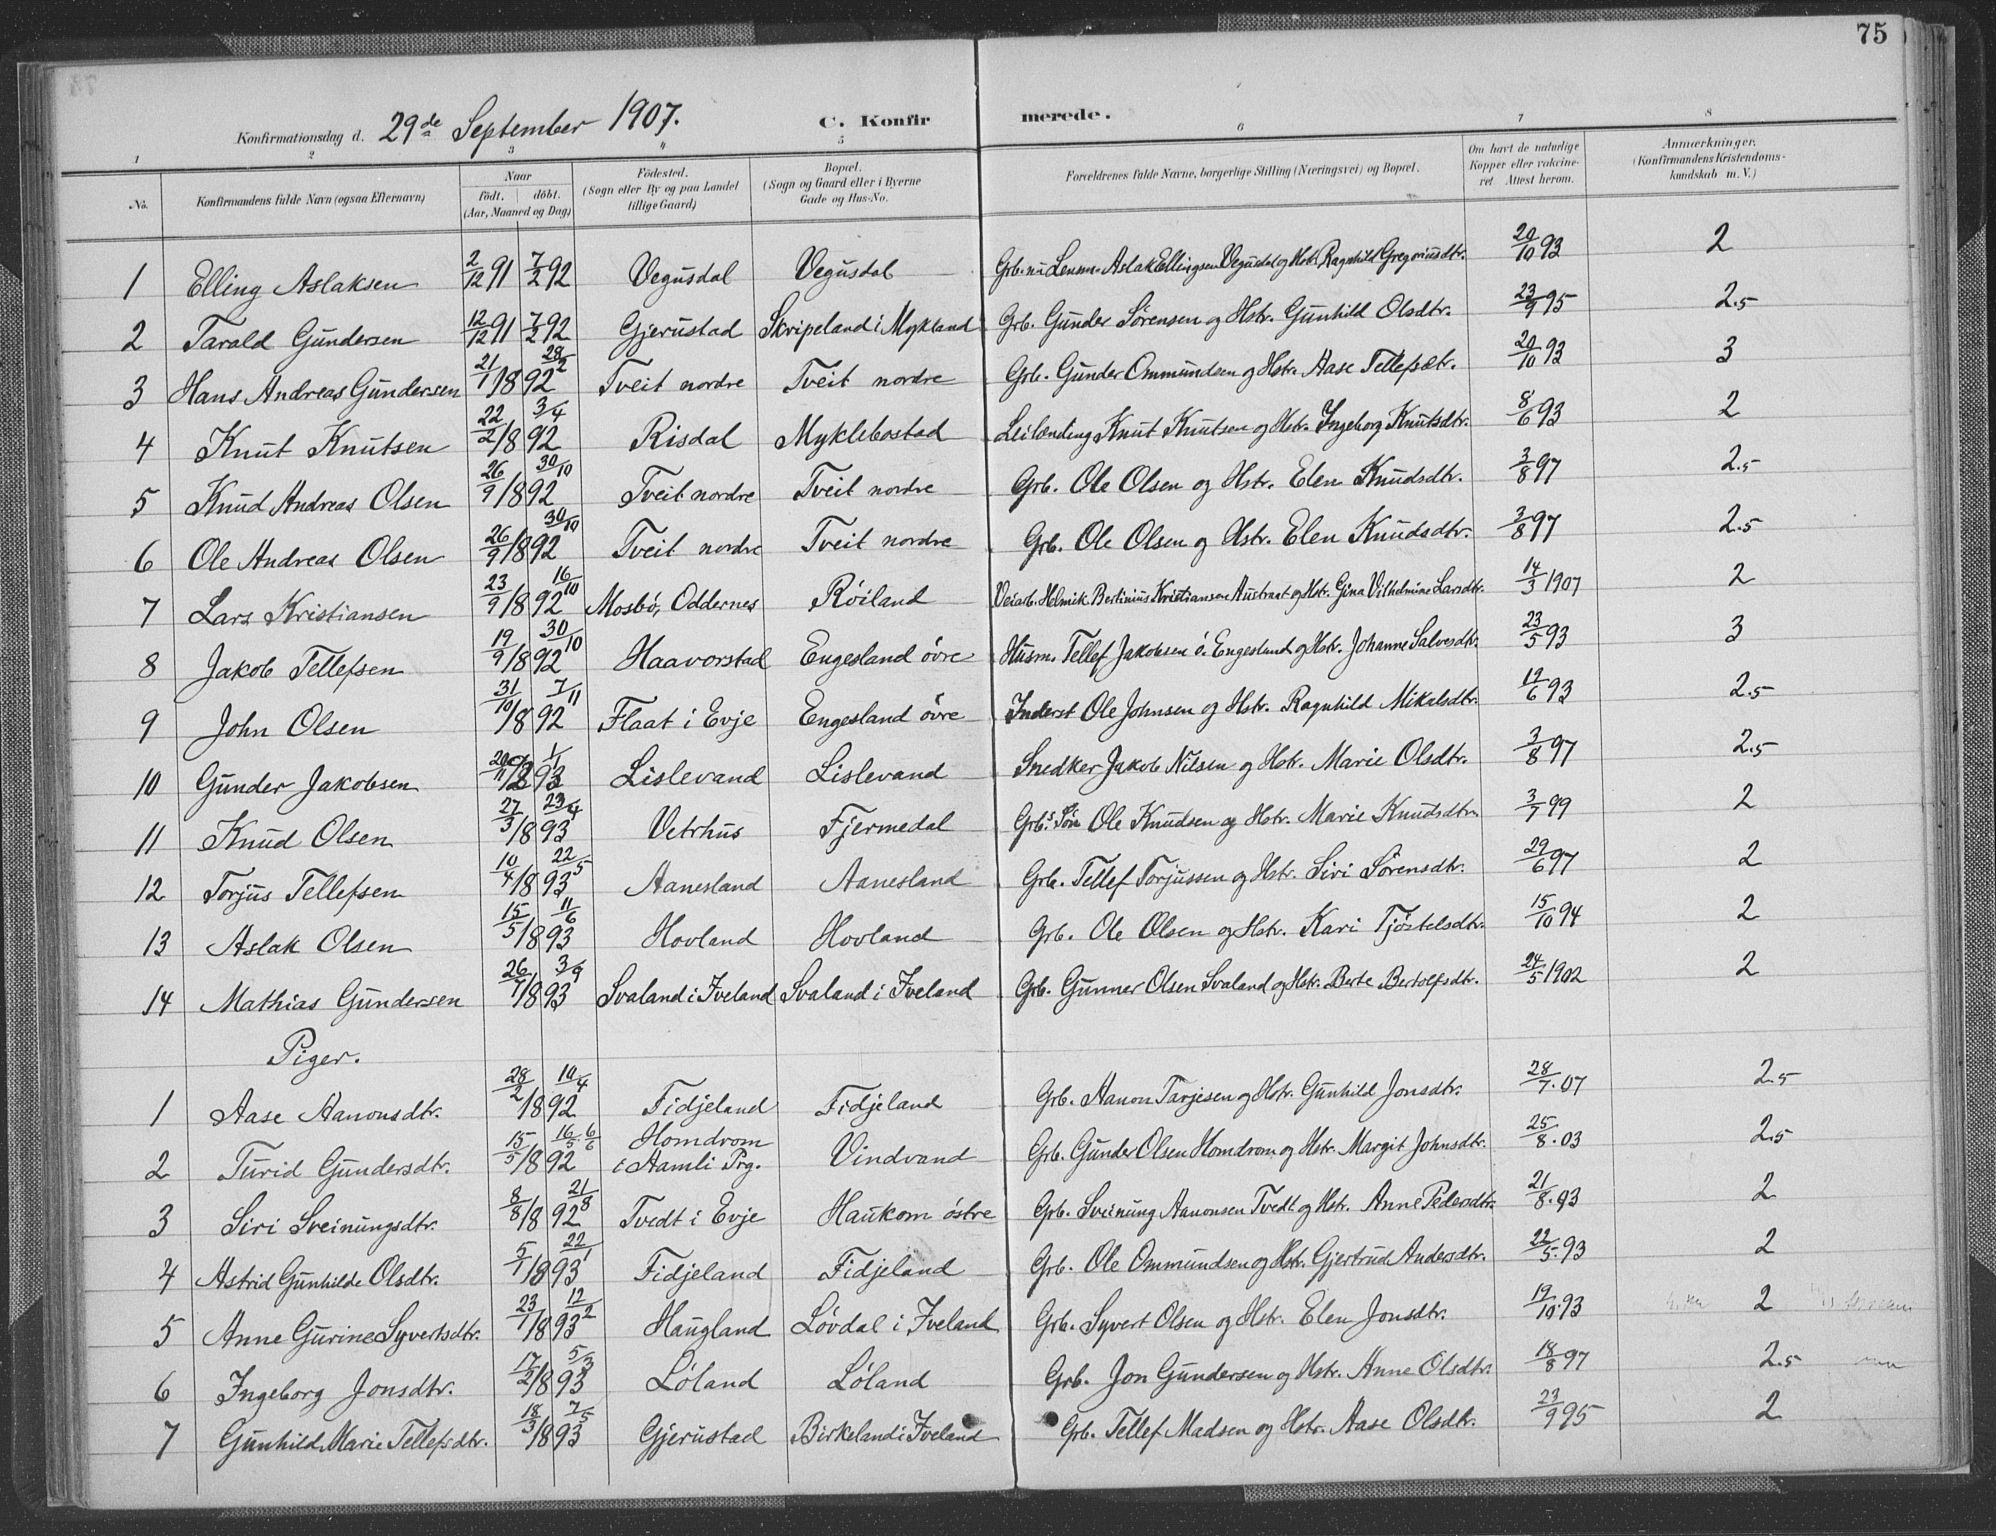 75
Konfirmationsdag d. 29de September 1907. C. Konfirmerede.
1 2 3 4 5 6 7 8
No. Konfirmandens fulde Navn (ogsaa Efternavn) Naar født. døbt. (Aar, Maaned og Dag) Fødested. (Sogn eller By og paa Landet tillige Gaard) Bopæl. (Sogn og Gaard eller i Byerne Gade og Hus-No. Forældrenes fulde Navne, borgerlige Stilling (Næringsvei) og Bopæl. Om havt de naturlige Kopper eller vaccineret. Attest herom. Anmærkninger. (Konfirmandens Kristendomskundskab m. V.)
1 Elling Aslaksen 2/12 91 7/2 92 Vegusdal Vegusdal Grb. Lensm. Aslak Ellingsen Vegusdal og Hstr. Ragnhild Gregoriusdtr. 20/10 93 2
2 Tarald Gundersen 12/12 91 7/2 92 Gjerustad Skripeland i Mykland Grb. Gunder Sørensen og Hstr. Gunhild Olsdtr. 23/9 95 2.5
3 Hans Andreas Gundersen 21/1 1892 28/2 Tveit nordre Tveit nordre Grb. Gunder Ommundsen og Hstr. Aase Tellefsdtr. 20/10 93 3
4 Knut Knutsen 22/2 1892 3/4 Risdal Myklebostad Leilænding Knut Knutsen og Hstr. Ingeborg Knutsdtr. 8/6 93 2
5 Knud Andreas Olsen 26/9 1892 30/10 Tveit nordre Tveit nordre Grb. Ole Olsen og Hstr. Elen Knudsdtr. 3/8 97 2.5
6 Ole Andreas Olsen 26/9 1892 30/10 Tveit nordre Tveit nordre Grb. Ole Olsen og Hstr. Elen Knudsdtr. 3/8 97 2.5
7 Lars Kristiansen 23/9 1892 16/10 Mosbø, Oddernes Røiland Veiarb. Helmik Bertinius Kristiansen Austraat og Hstr. Gina Vilhelmine Larsdtr. 14/3 1907 2
8 Jakob Tellefsen 19/9 1892 30/10 Haavorstad Engesland øvre Husm. Tellef Jakobsen ø. Engesland og Hstr. Johanne Salvesdtr. 23/5 93 3
9 John Olsen 31/10 1892 7/11 Flaat i Evje Engesland øvre Inderst Ole Johnsen og Hstr. Ragnhild Mikalsdtr. 12/6 93 2.5
10 Gunder Jakobsen 20/11 1/1 93 Lislevand Lislevand Snedker Jakob Nilsen og Hstr. Marie Olsdtr. 3/8 97 2.5
11 Knud Olsen 27/3 1893 23/4 Vetrhus Fjermedal Grb.s Søn Ole Knudsen og Hstr. Marie Knudsdtr. 3/7 99 2
12 Torjus Tellefsen 10/4 1893 22/5 Aanesland Aanesland Grb. Tellef Torjussen og Hstr. Siri Sørensdtr. 29/6 97 2
13 Aslak Olsen 15/5 1893 11/6 Hovland Hovland Grb. Ole Olsen og Hstr. Kari Tjøstelsdtr. 15/10 94 2
14 Mathias Gundersen 26/7 1893 3/9 Svaland i Iveland Svaland i Iveland Grb. Gunner Olsen Svaland og Hstr. Berte Bertolfsdtr. 24/5 1902 2
Piger.
1 Aase Aanonsdtr. 28/2 1892 10/4 Fidjeland Fidjeland Grb. Aanon Tarjesen og Hstr. Gunhild Jonsdtr. 28/7. 07 2.5
2 Turid Gundersdtr. 15/5 1892 16/5. 6/6 Homdrom i Hamli Prg. Vindvand Grb. Gunder Olsen Homdrom og Hstr. Margit Johnsdtr. 25/8. 03 2.5
3 Siri Sveinungsdtr. 8/8 1892 21/8 Tvedt i Evje Haukom østre Grb. Sveinung Aanonsen Tvedt og Hstr. Anne Pedersdtr. 21/8. 93 2
4 Astrid Gunhilde Olsdtr. 5/1 1893 22/1 Fidjeland Fidjeland Grb. Ole Ommundsen og Hstr. Gjertrud Andersdtr. 22/5. 93 2
5 Anne Gurine Syvertsdtr. 23/1 1893 12/2 Haugland Løvdal i Iveland Grb. Syvert Olsen og Hstr. Elen Jonsdtr. 19/10 93 2
6 Ingeborg Jonsdtr. 17/2 1893 5/3 Løland Løland Grb. Jon Gundersen og Hstr. Anne Olsdtr. 18/8 97 2.5
7 Gunhild Marie Tellefsdtr. 18/3 1893 7/5 Gjerustad Birkeland i Iveland Grb. Tellef Madsen og Hstr. Aase Olsdtr. 23/9 95 2